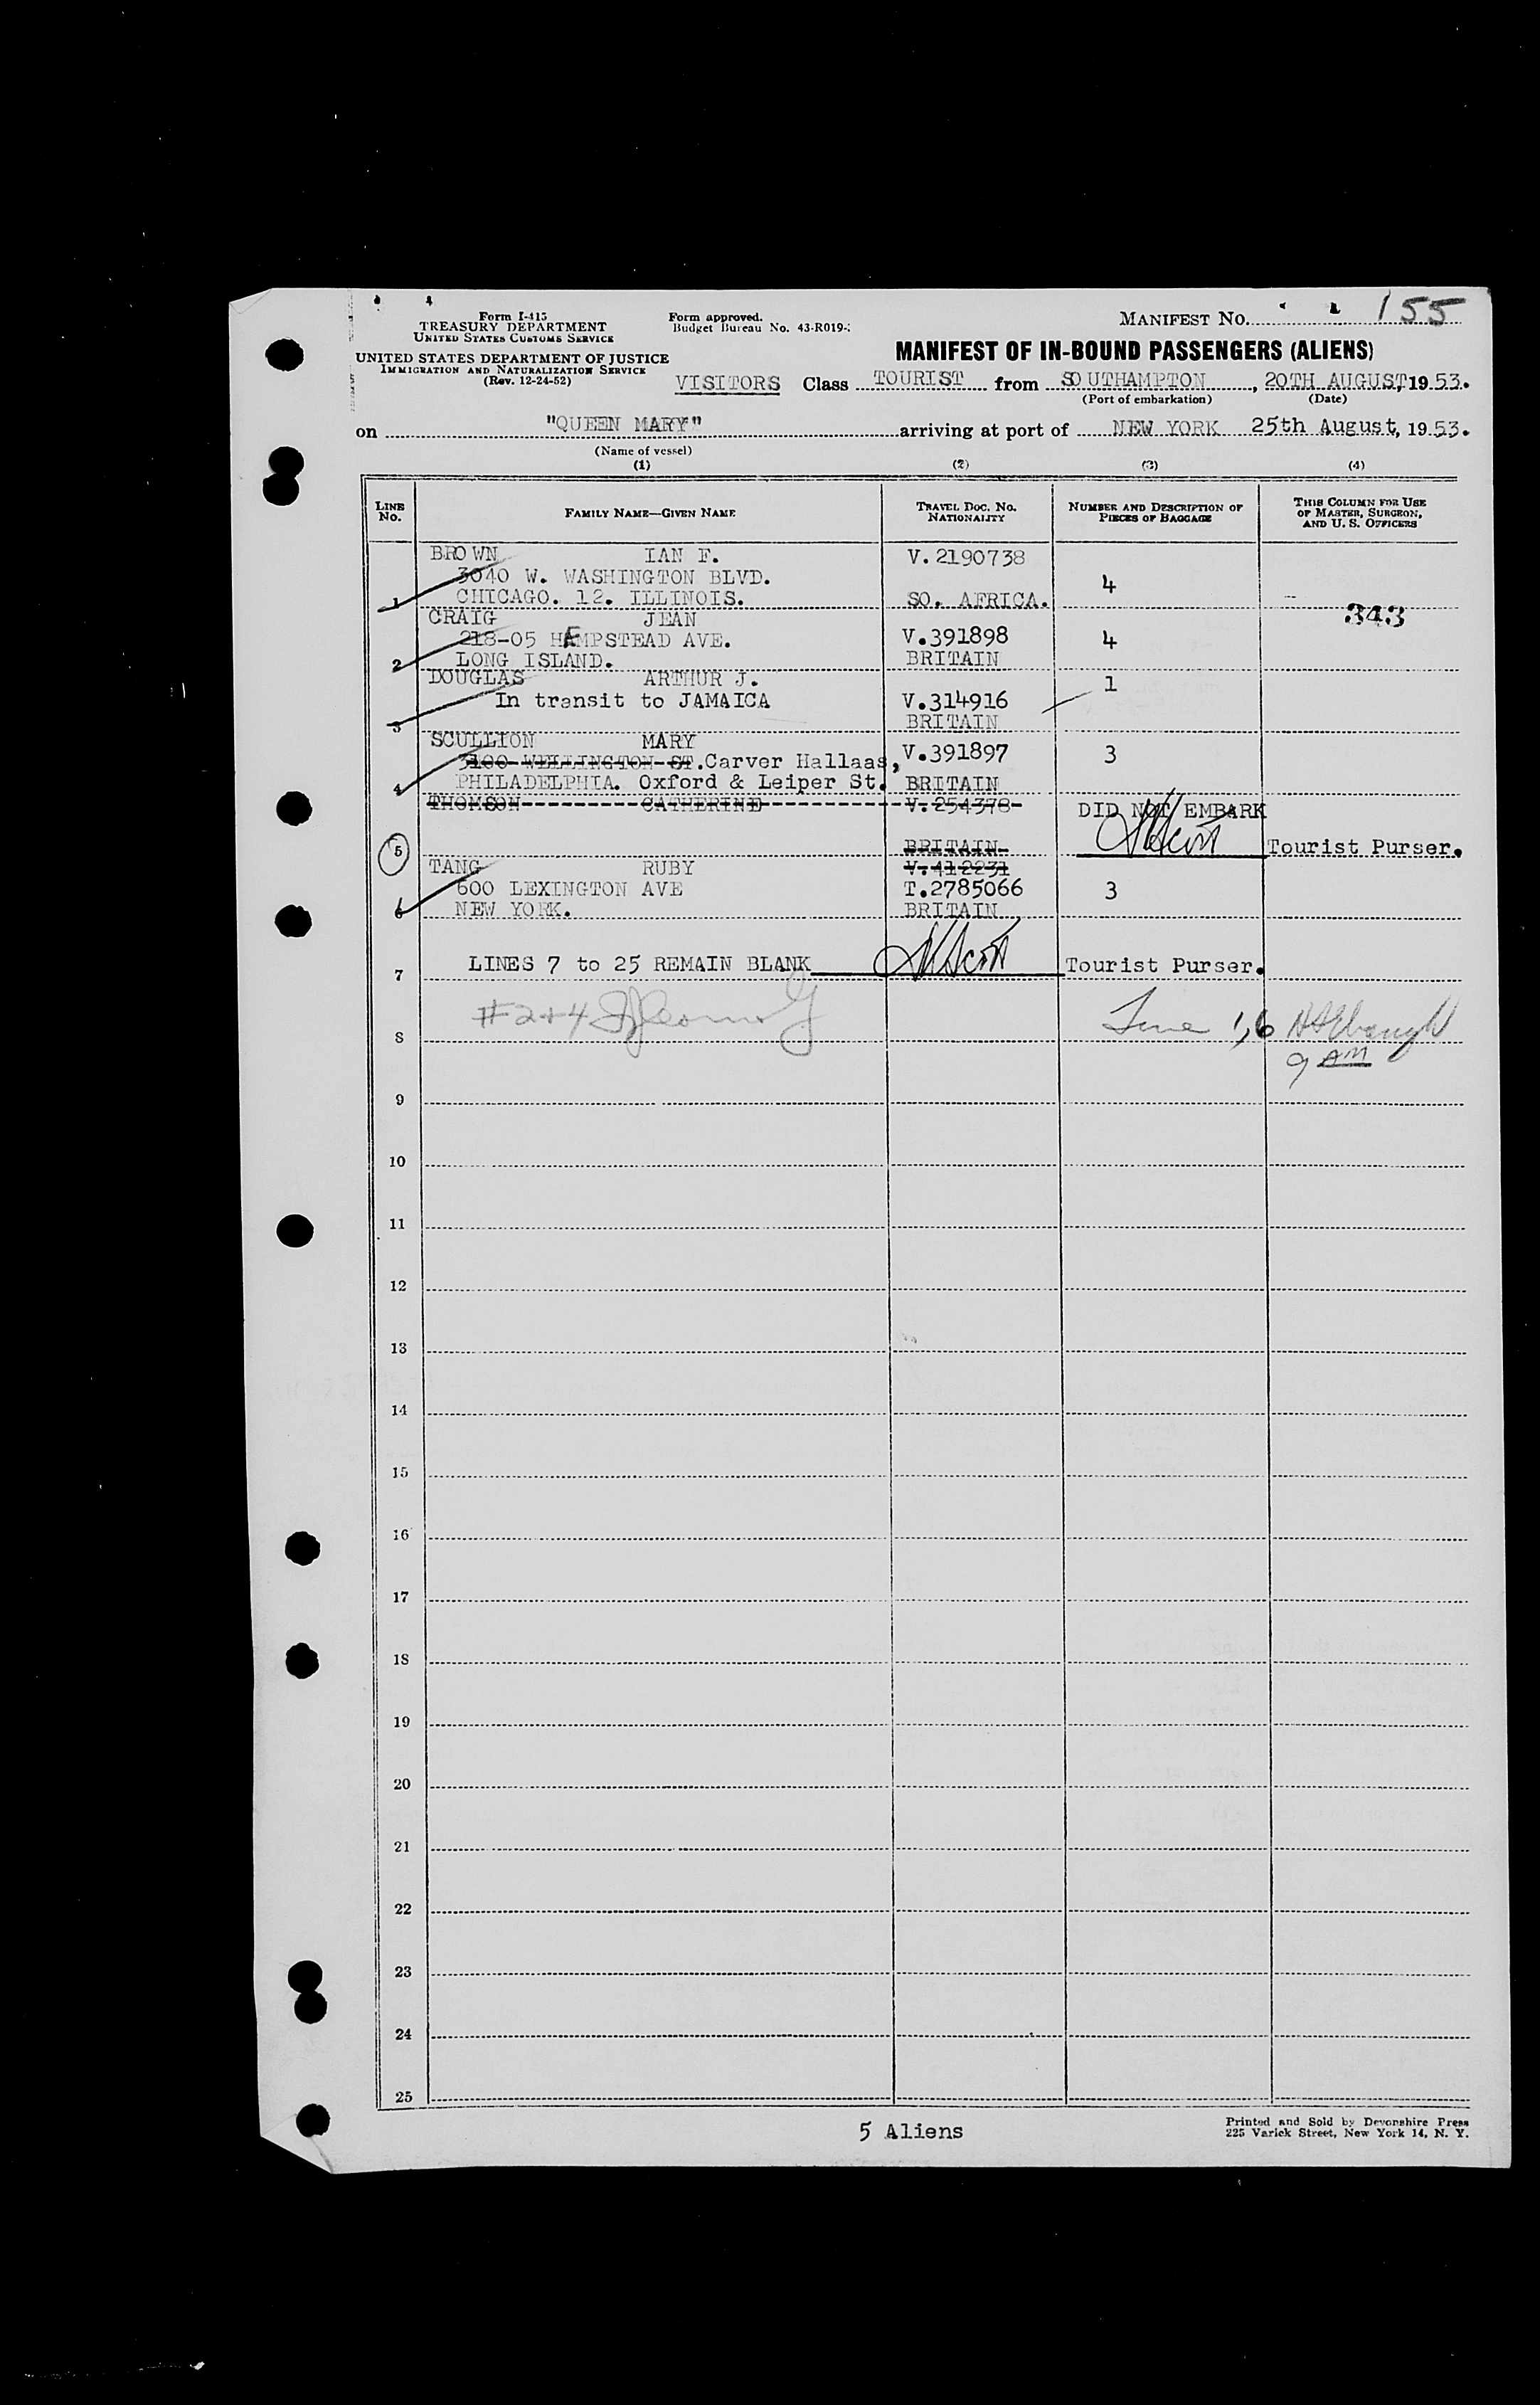 Form I-415
TREASURY DEPARTMENT
UNITED STATES CUSTOMS SERVICE
UNITED STATES DEPARTMENT OF JUSTICE
IMMIGRATION AND NATURALIZATION SERVICE
(Rev. 12-24-52)
Form approved.
Budget Bureau No. 43-R019-
MANIFEST NO. 155
MANIFEST OF IN-BOUND PASSENGERS (ALIENS)
VISITORS Class TOURIST from SOUTHAMPTON, 20TH AUGUST, 1953.
(Port of embarkation) (Date)
on "QUEEN MARY" arriving at port of NEW YORK 25th August, 1953.
(Name of vessel)
(1) (2) (3) (4)
LINE NO. FAMILY NAME—GIVEN NAME TRAVEL DOC. NO. NATIONALITY NUMBER AND DESCRIPTION OF PIECES OF BAGGAGE THIS COLUMN FOR USE OF MASTER, SURGEON, AND U. S. OFFICERS
BROWN IAN F. V.2190738
3040 W. WASHINGTON BLVD. 4
1 CHICAGO. 12. ILLINOIS. SO. AFRICA.
CRAIG JEAN 343
218-05 HEMPSTEAD AVE. V.391898 4
2 LONG ISLAND. BRITAIN
DOUGLAS ARTHUR J. 1
In transit to JAMAICA V.314916
3 BRITAIN
SCULLION MARY
3100 WELLINGTON ST. Carver Hallaas, V.391897 3
4 PHILADELPHIA. Oxford & Leiper St. BRITAIN
THOMSON CATHERINE V.254378 DID NOT EMBARK
5 BRITAIN Tourist Purser.
TANG RUBY V.412231
600 LEXINGTON AVE T.2785066 3
6 NEW YORK. BRITAIN
7 LINES 7 to 25 REMAIN BLANK Tourist Purser.
#2+4
8 1,6
9 AM
9
10
11
12
13
14
15
16
17
18
19
20
21
22
23
24
25
5 Aliens
Printed and Sold by Devonshire Press
225 Varick Street, New York 14, N. Y.